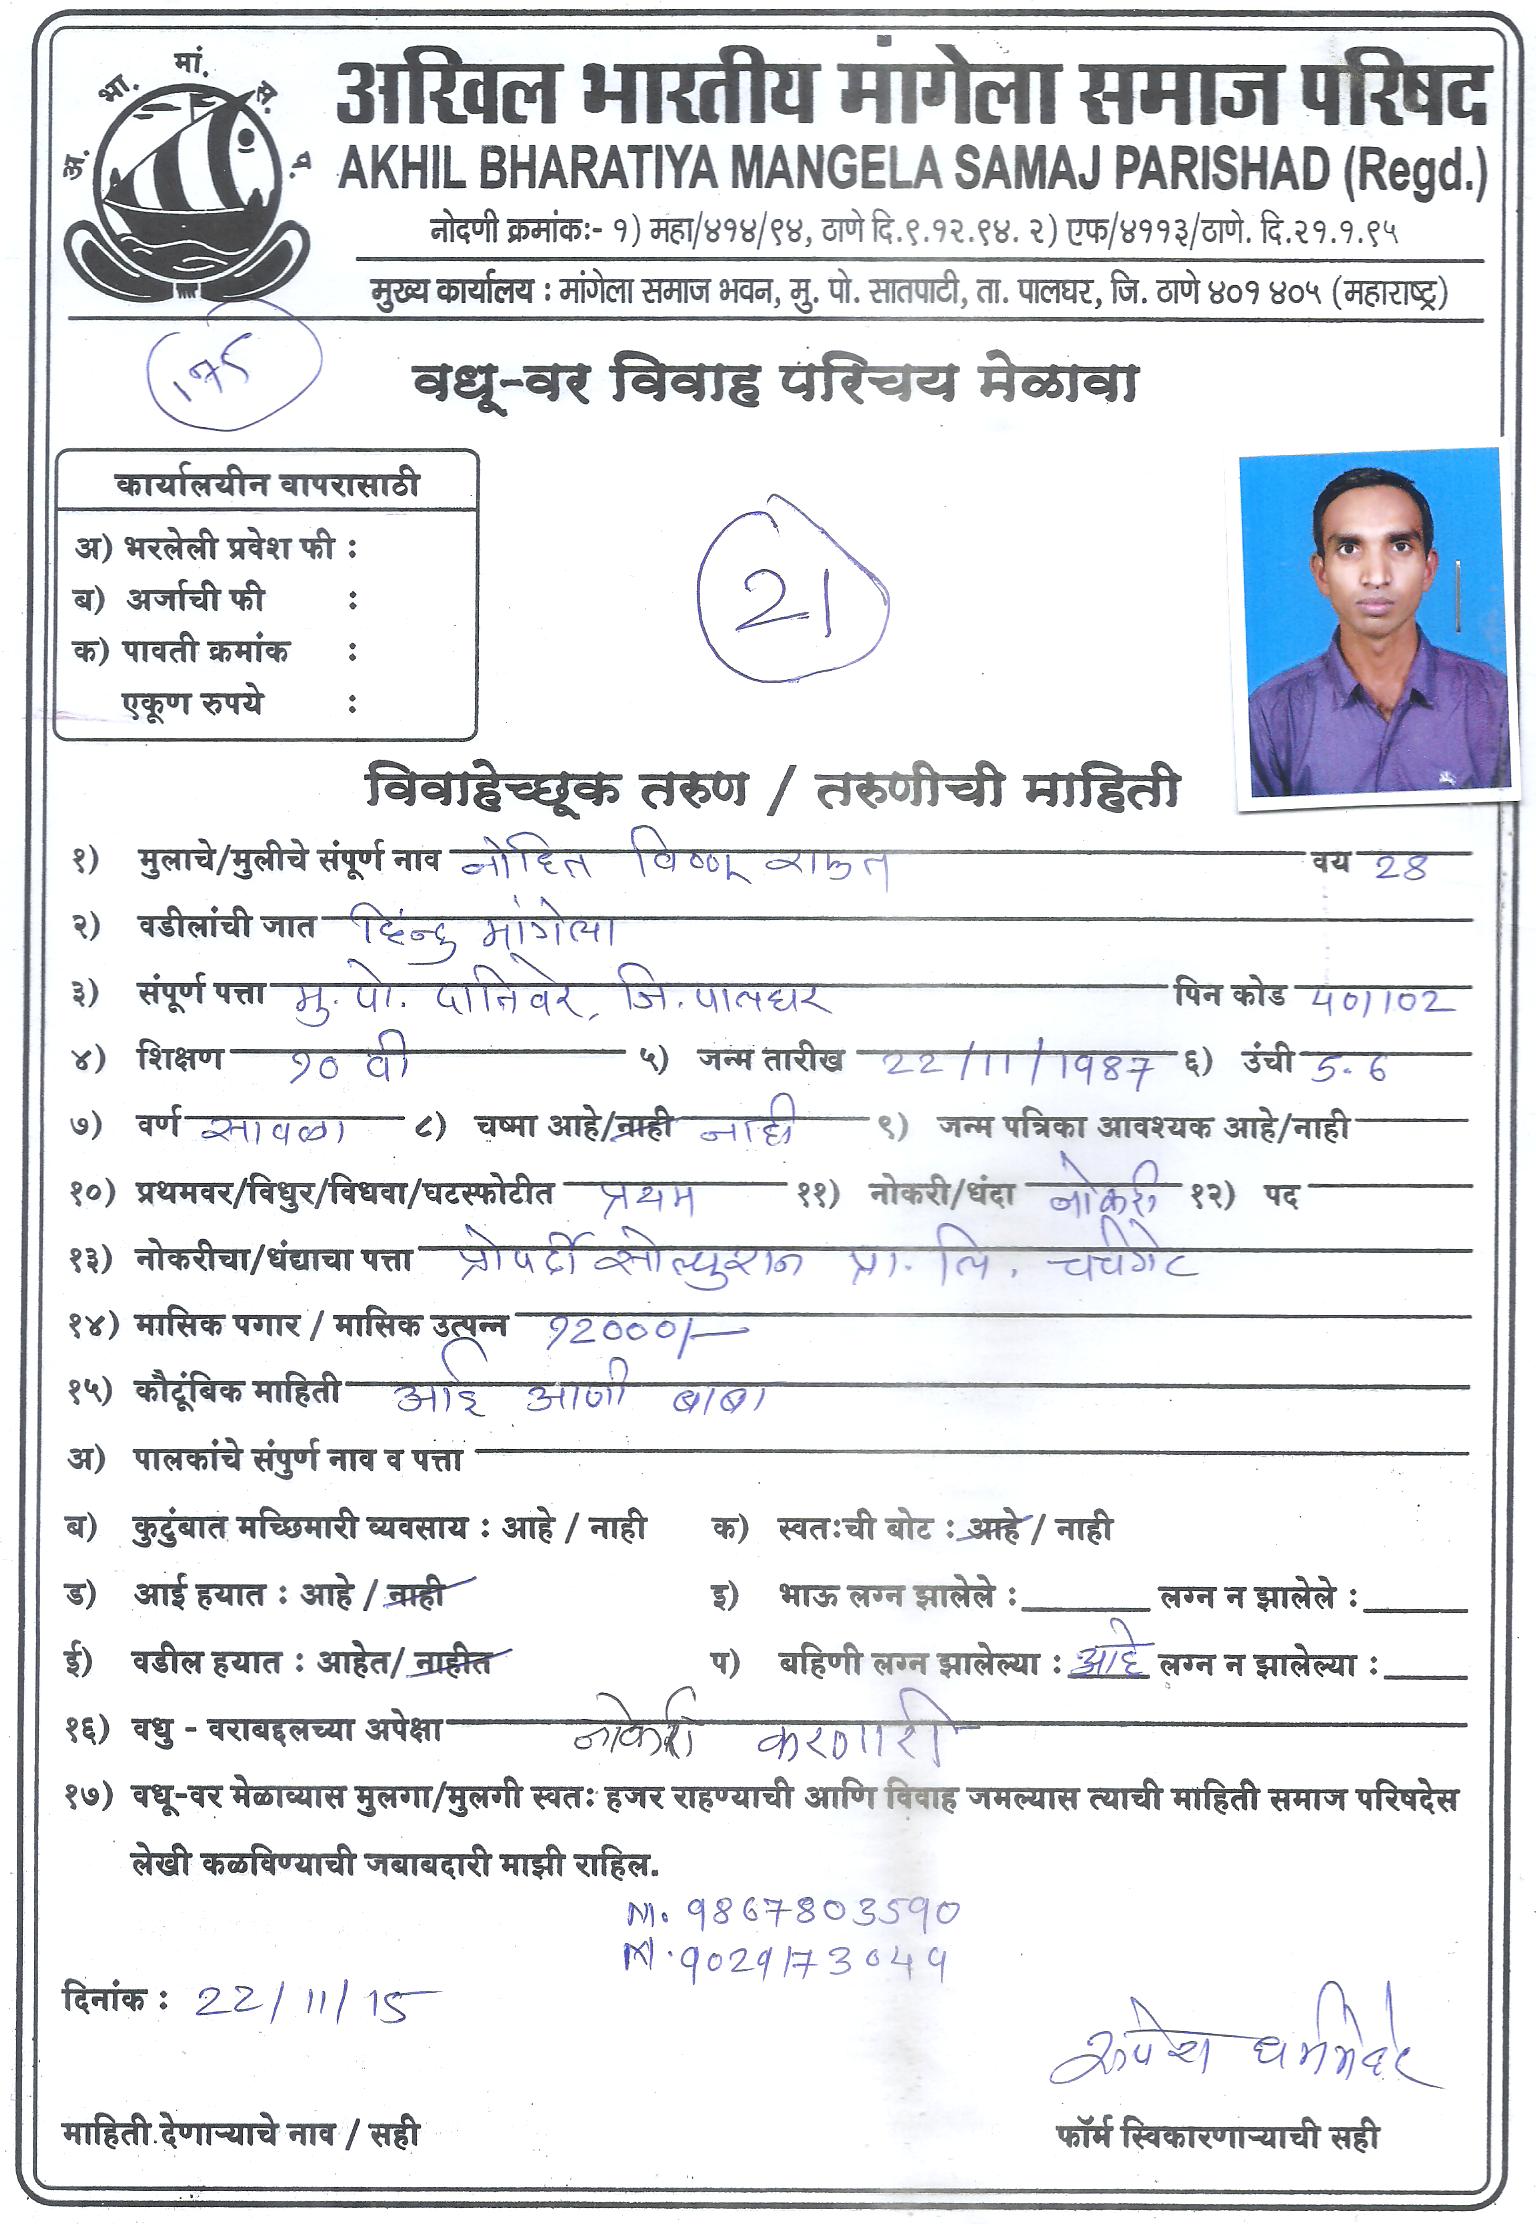 अ. भा. मां. स. प.
अखिल भारतीय मांगेला समाज परिषद
AKHIL BHARATIYA MANGELA SAMAJ PARISHAD (Regd.)
नोदणी क्रमांकः- १) महा/४१४/९४, ठाणे दि.९.१२.९४. २) एफ/४११३/ठाणे. दि.२१.१.९५
मुख्य कार्यालय : मांगेला समाज भवन, मु. पो. सातपाटी, ता. पालघर, जि. ठाणे ४०१ ४०५ (महाराष्ट्र)
वधू-वर विवाह परिचय मेळावा
कार्यालयीन वापरासाठी
अ) भरलेली प्रवेश फी :
ब) अर्जाची फी :
क) पावती क्रमांक :
एकूण रुपये :
21
विवाहेच्छूक तरुण / तरुणीची माहिती
१) मुलाचे/मुलीचे संपूर्ण नाव विष्णू राऊत वय 28
२) वडीलांची जात हिन्दु मांगेला
३) संपूर्ण पत्ता मु. पो. दातिवरे, जि. पालघर पिन कोड 401102
४) शिक्षण १० वी ५) जन्म तारीख 22/11/1987 ६) उंची 5.6
७) वर्ण सावळा ८) चष्मा आहे/नाही नाही ९) जन्म पत्रिका आवश्यक आहे/नाही
१०) प्रथमवर/विधुर/विधवा/घटस्फोटीत प्रथम ११) नोकरी/धंदा नोकरी १२) पद
१३) नोकरीचा/धंद्याचा पत्ता प्रोपर्टी सोल्युशन प्रा. लि. चर्चगेट
१४) मासिक पगार / मासिक उत्पन्न १2000/-
१५) कौटूंबिक माहिती आई आणी बाबा
अ) पालकांचे संपुर्ण नाव व पत्ता
ब) कुटुंबात मच्छिमारी व्यवसाय : आहे / नाही क) स्वतःची बोट : आहे / नाही
ड) आई हयात : आहे / नाही इ) भाऊ लग्न झालेले : लग्न न झालेले :
ई) वडील हयात : आहेत/ नाहीत प) बहिणी लग्न झालेल्या : आहे लग्न न झालेल्या :
१६) वधु - वराबद्दलच्या अपेक्षा नोकरी करणारी
१७) वधू-वर मेळाव्यास मुलगा/मुलगी स्वतः हजर राहण्याची आणि विवाह जमल्यास त्याची माहिती समाज परिषदेस
लेखी कळविण्याची जबाबदारी माझी राहिल.
M. 9867803590
M. 9029173049
दिनांक : 22/11/15
माहिती देणाऱ्याचे नाव / सही
फॉर्म स्विकारणाऱ्याची सही